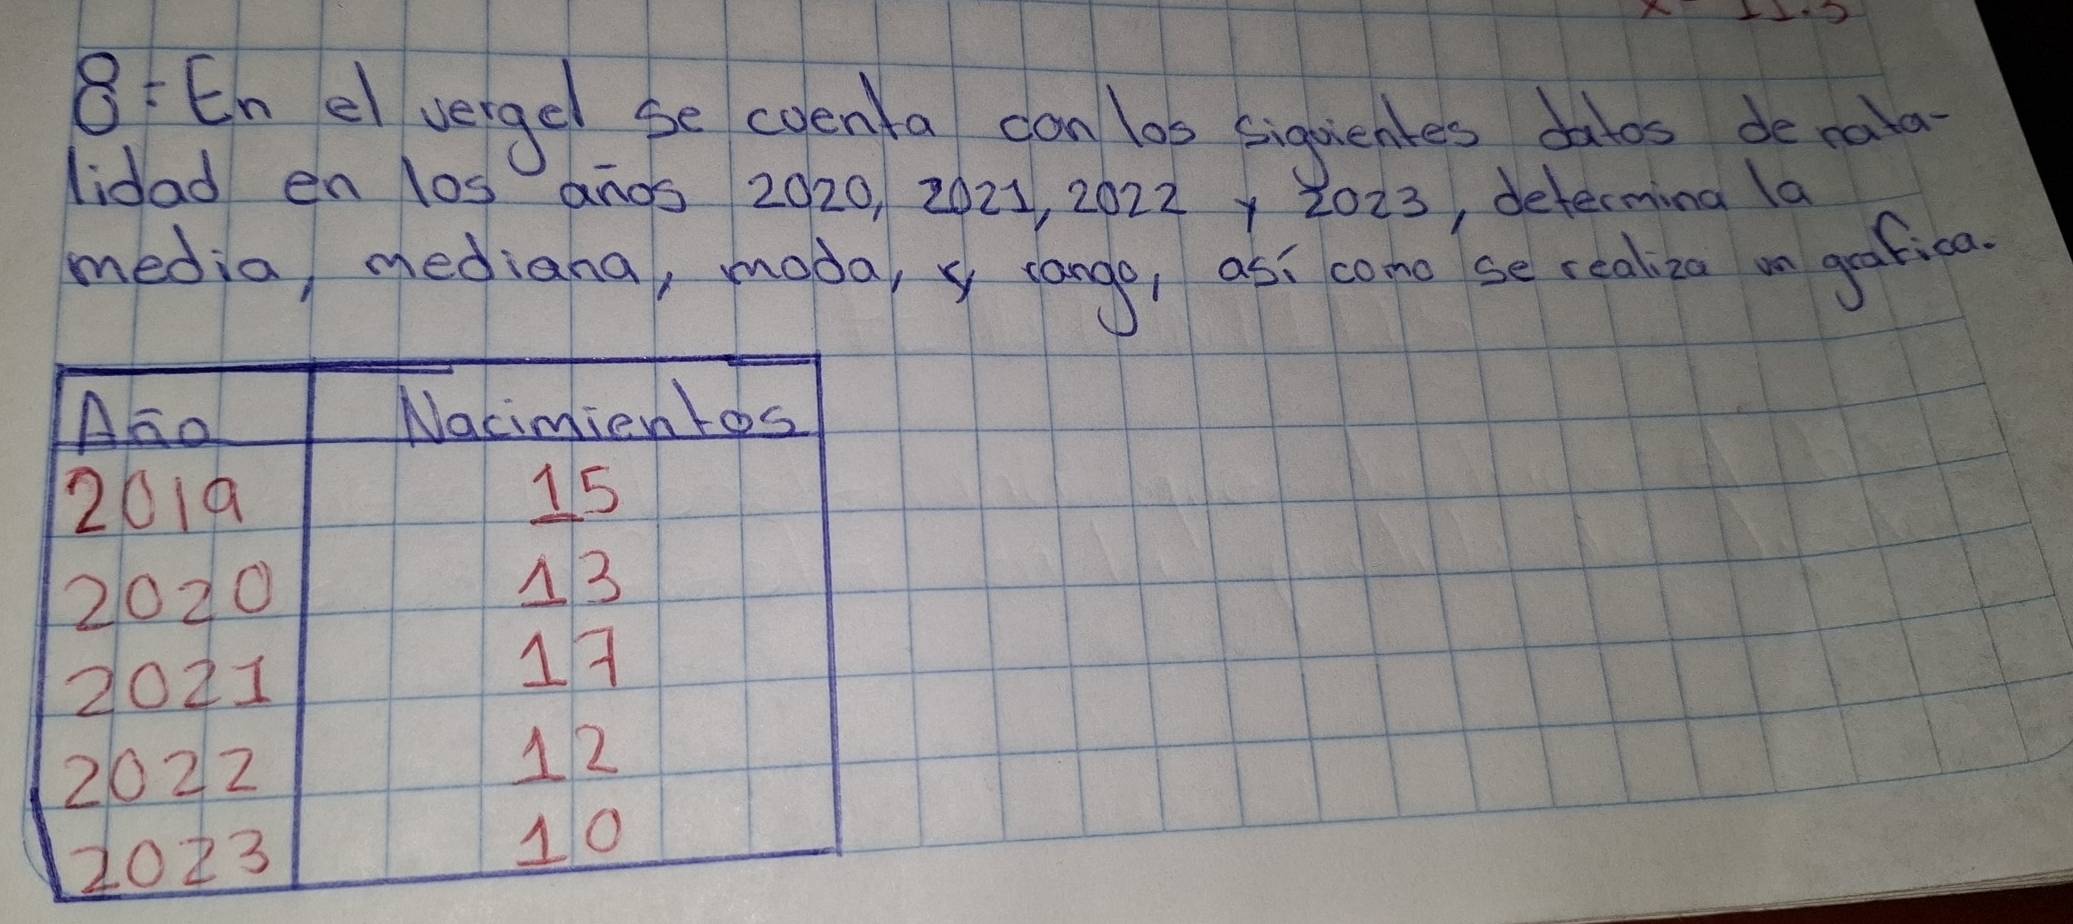 x= 11.5
8= En el vergel se cuenta con los siguientes datos de nata-
lidad en los años 2020, 2021, 2022 y 2023, determina la
media, mediana, moda, y rango, así como se realiza un grafica.
Año Nacimientos
2019 15
2020 13
2021 17
2022 12
2023 10